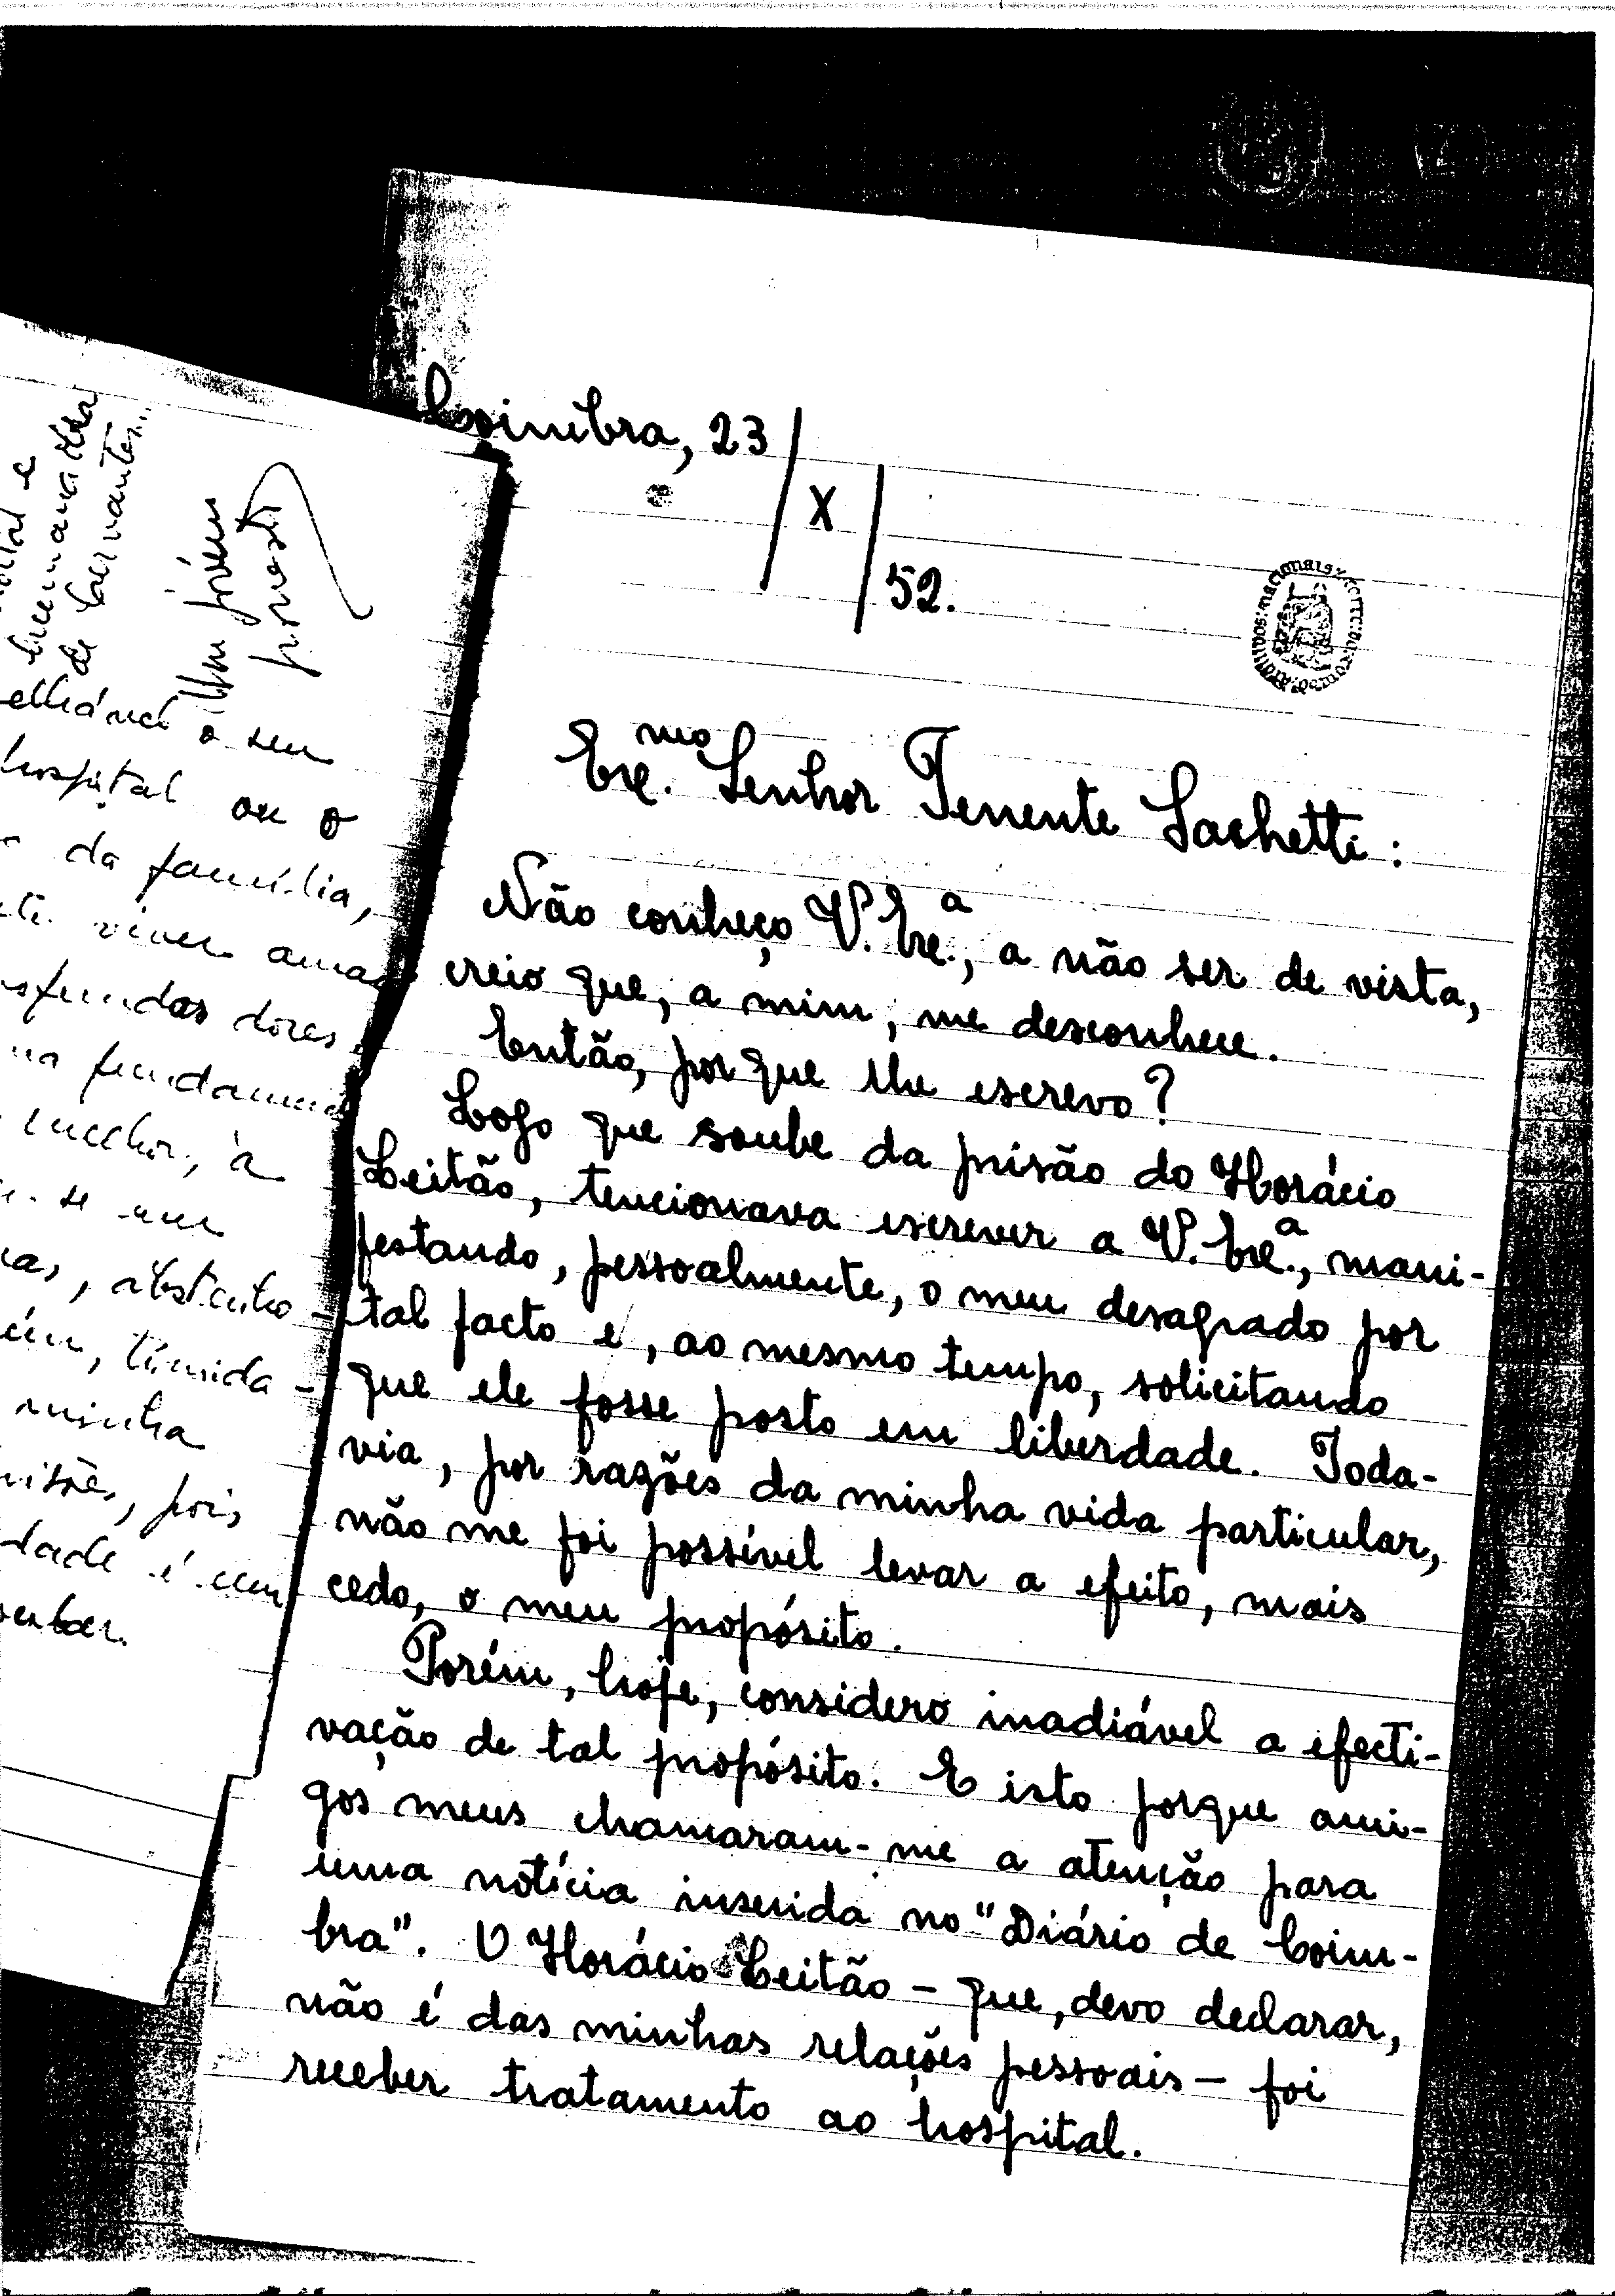 Coimbra, 23/X/52.
Exc.mo Senhor Tenente Sachetti:
Não conheço V. Exc.a, a não ser de vista,
creio que, a mim, me desconhece.
Então, porque lhe escrevo?
Logo que soube da prisão do Horácio
Leitão, tencionava escrever a V. Exc.a, mani-
festando, pessoalmente, o meu desagrado por
tal facto e, ao mesmo tempo, solicitando
que ele fosse posto em liberdade. Toda-
via, por razões da minha vida particular,
não me foi possível levar a efeito, mais
cedo, o meu propósito.
Porém, hoje, considero inadiável a efecti-
vação de tal propósito. E isto porque ami-
gos meus chamaram-me a atenção para
uma notícia inserida no "Diário de Coim-
bra". O Horácio Leitão - que, devo declarar,
não é das minhas relações pessoais - foi
receber tratamento ao hospital.
de
Um jóvem
o seu
hospital ou o
da família,
viver
dores
à
se um
minha
pois